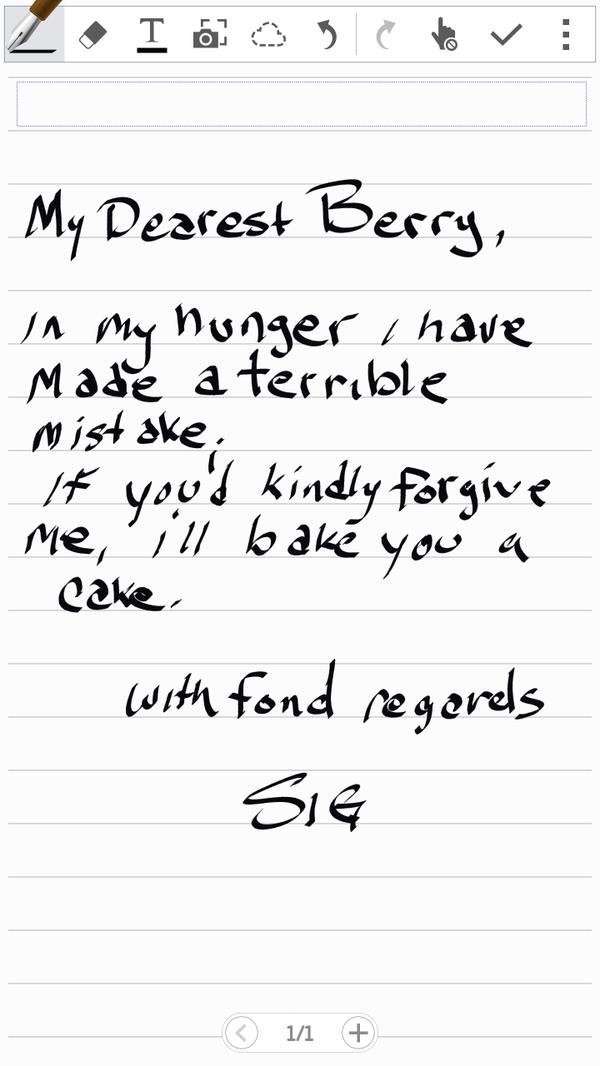 T
My Dearest Berry,
in my hunger i have
Made a terrible
mistake.
If you'd kindly forgive
Me, i'll bake you a
cake.
with fond regards
SIG
1/1